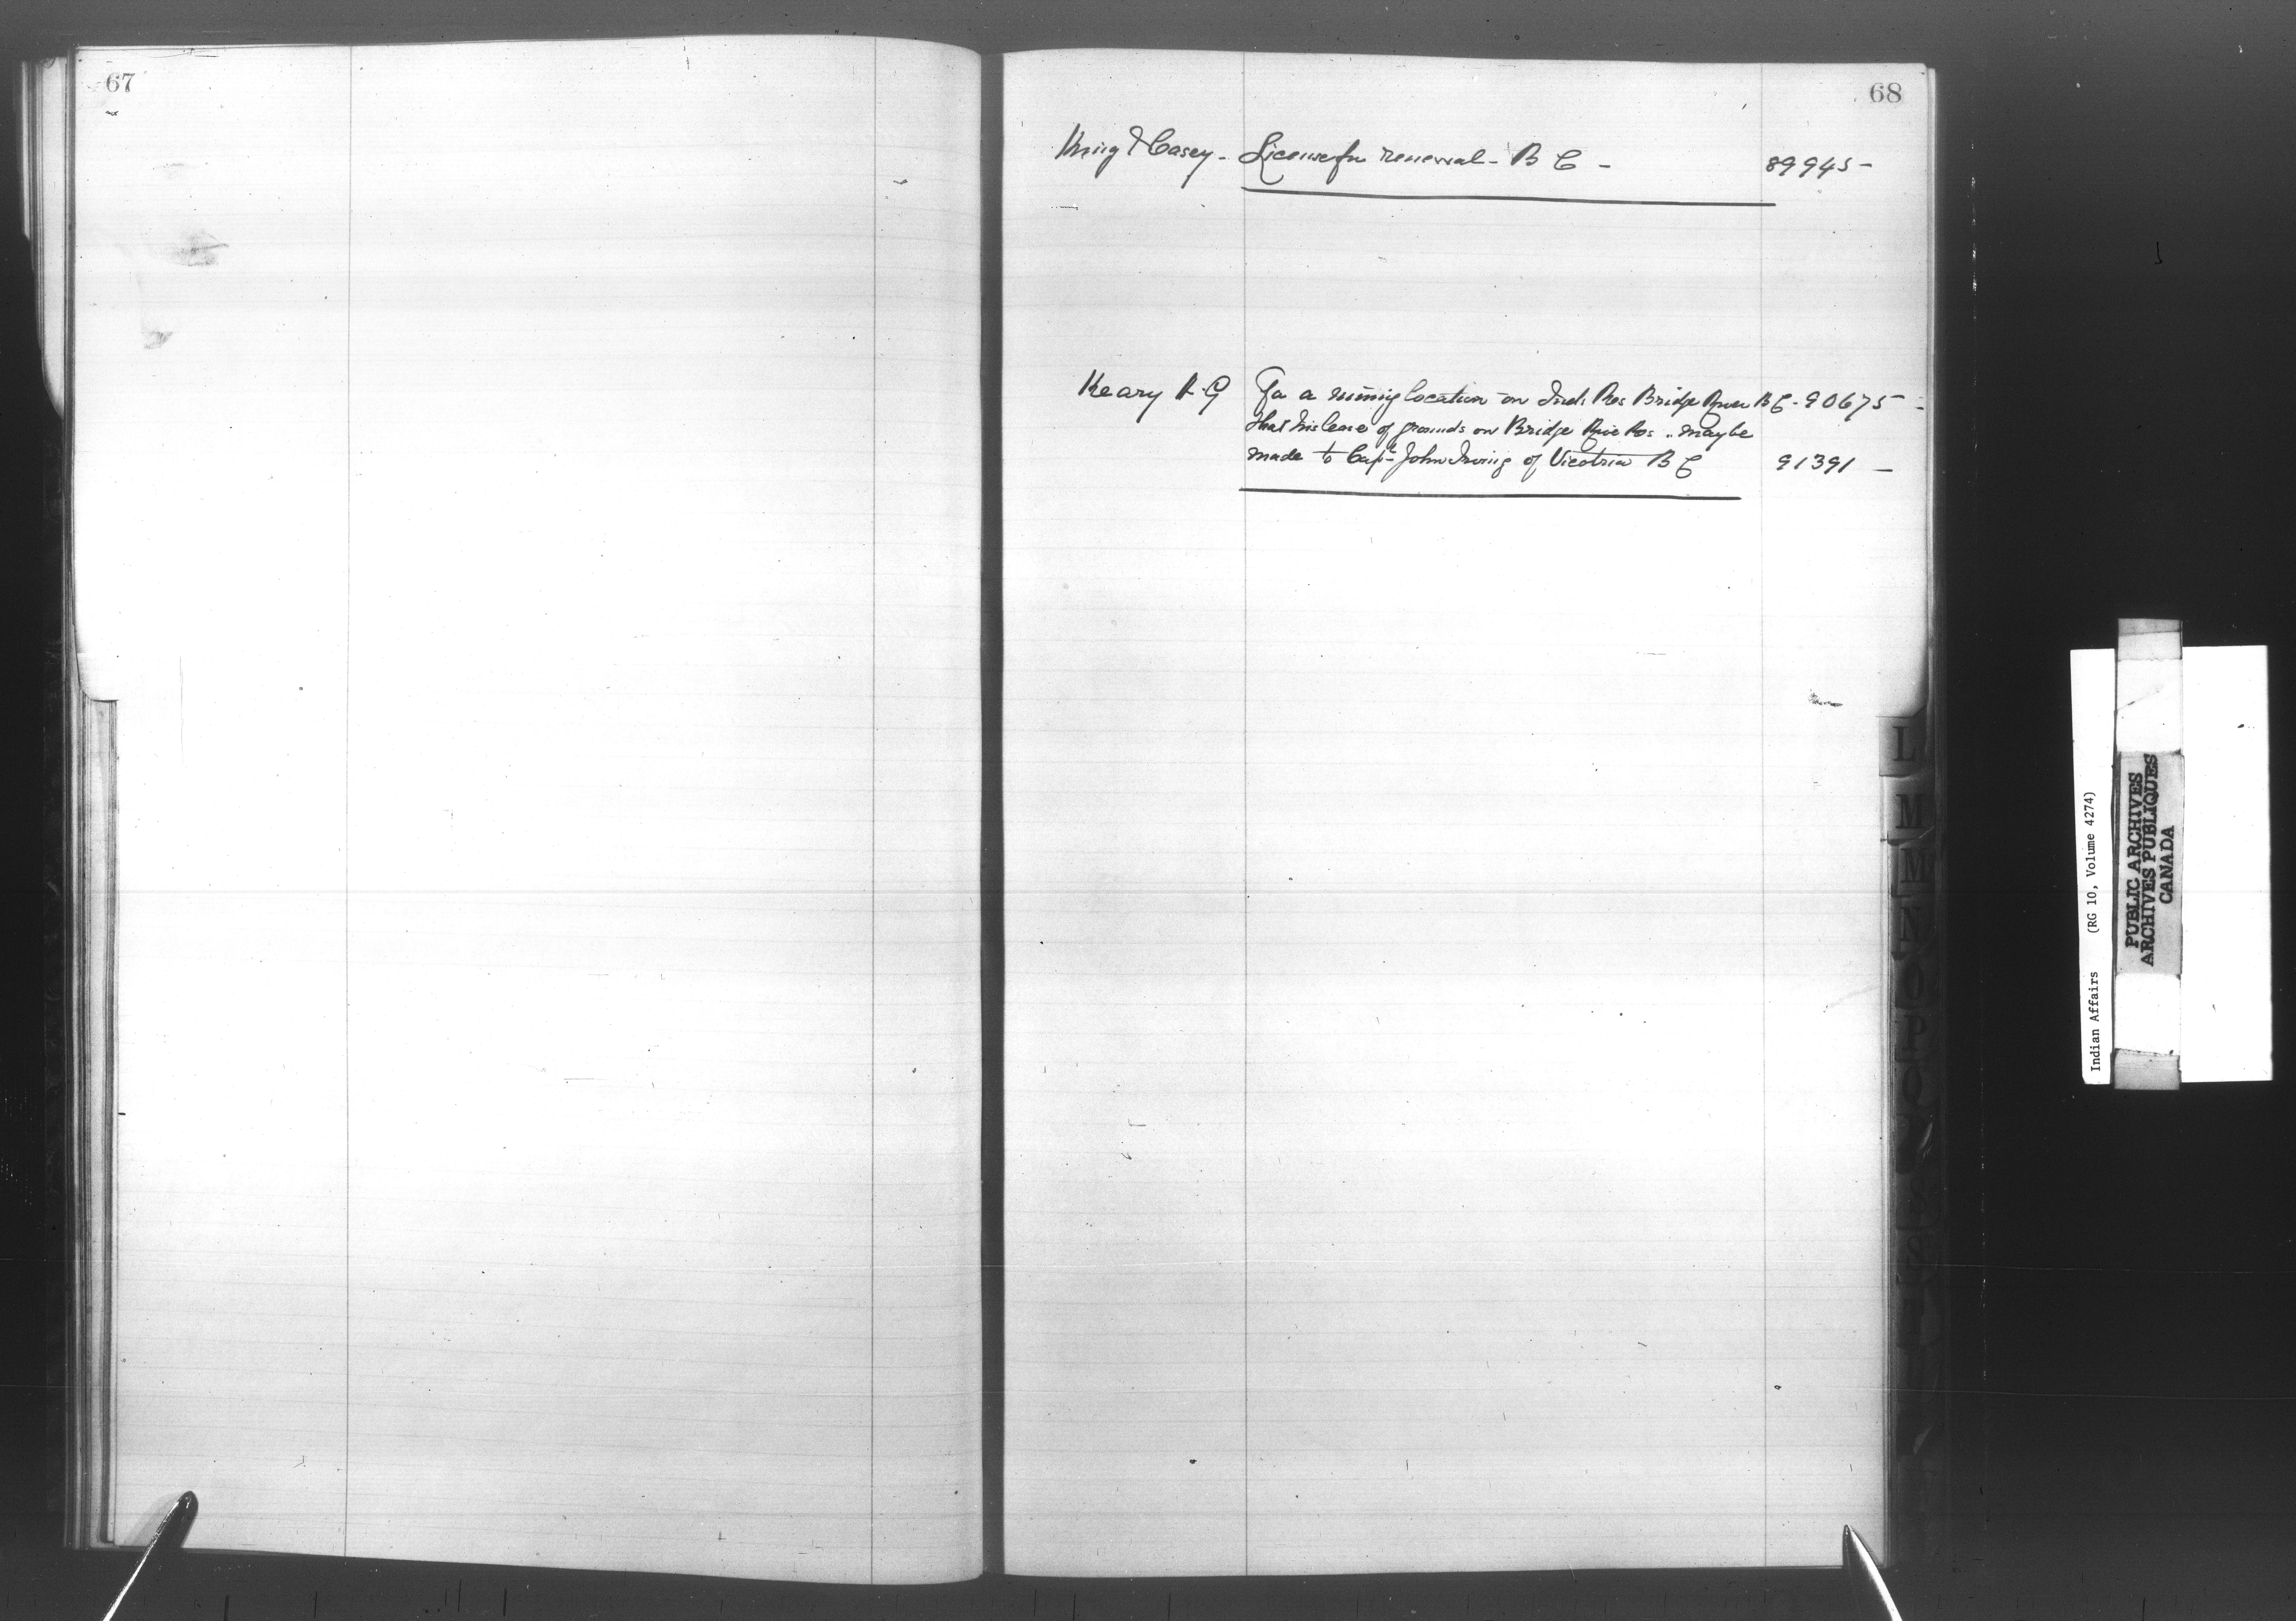 67
68
King & Casey - License for renewal - B C - 89945 -
Keary A. G For a mining location on Ind. Res Bridge River B C - 90675 -
that his lease of grounds on Bridge River Res. maybe
made to Capt John Irving of Vicotria B C 91391 -
L
M
M
N
O
P
Indian Affairs (RG 10, Volume 4274)
PUBLIC ARCHIVES
ARCHIVES PUBLIQUES
CANADA